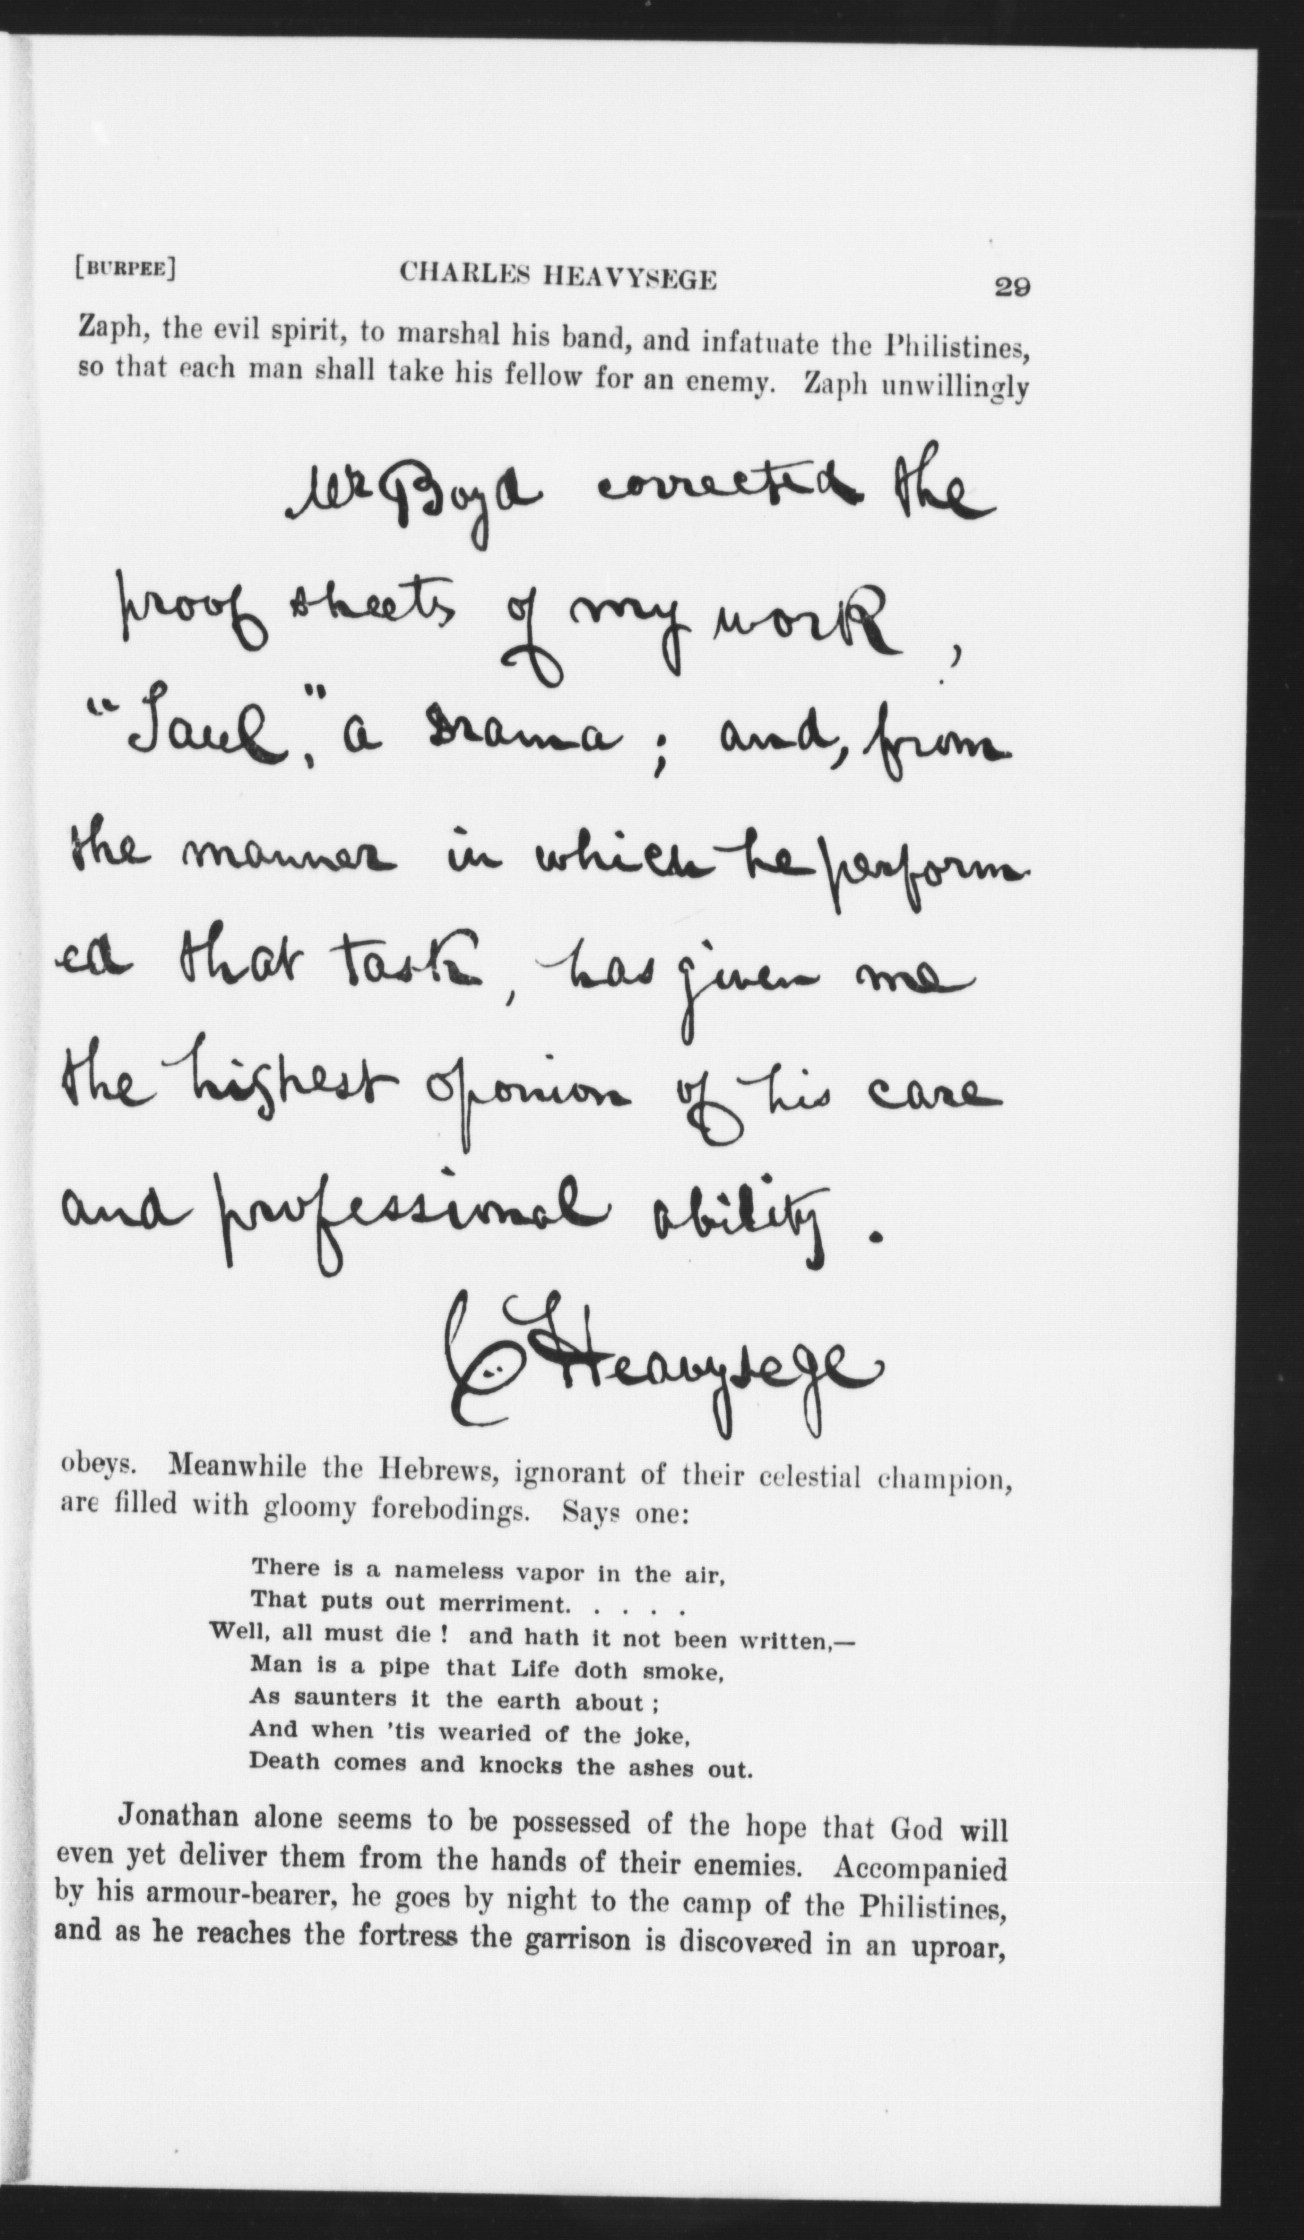 [BURPEE] CHARLES HEAVYSEGE 29
Zaph, the evil spirit, to marshal his band, and infatuate the Philistines,
so that each man shall take his fellow for an enemy. Zaph unwillingly
Mr Boyd corrected the
proof sheets of my work,
"Saul," a Drama; and, from
the manner in which he perform
ed that task, has given me
the highest oponion of his care
and professional ability.
C Heavysege
obeys. Meanwhile the Hebrews, ignorant of their celestial champion,
are filled with gloomy forebodings. Says one:
There is a nameless vapor in the air,
That puts out merriment. . . . .
Well, all must die ! and hath it not been written,—
Man is a pipe that Life doth smoke,
As saunters it the earth about ;
And when 'tis wearied of the joke,
Death comes and knocks the ashes out.
Jonathan alone seems to be possessed of the hope that God will
even yet deliver them from the hands of their enemies. Accompanied
by his armour-bearer, he goes by night to the camp of the Philistines,
and as he reaches the fortress the garrison is discovered in an uproar,